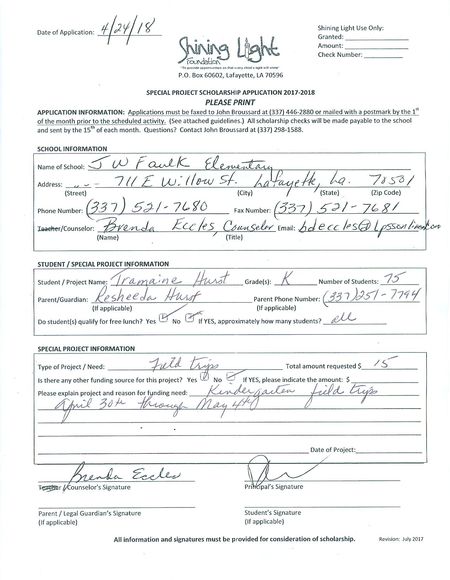 Date of Application: 4/24/18
Shining Light
Foundation
"To provide opportunities so that every child's light will shine"
P.O. Box 60602, Lafayette, LA 70596
Shining Light Use Only:
Granted:
Amount:
Check Number:
SPECIAL PROJECT SCHOLARSHIP APPLICATION 2017-2018
PLEASE PRINT
APPLICATION INFORMATION: Applications must be faxed to John Broussard at (337) 446-2880 or mailed with a postmark by the 1st
of the month prior to the scheduled activity. (See attached guidelines.) All scholarship checks will be made payable to the school
and sent by the 15th of each month. Questions? Contact John Broussard at (337) 298-1588.
SCHOOL INFORMATION
Name of School: J W Faulk Elementary
Address: 711 E Willow St. Lafayette, La. 70501
(Street) (City) (State) (Zip Code)
Phone Number: (337) 521-7680 Fax Number: (337) 521-7681
Teacher/Counselor: Brenda Eccles, Counselor Email: bdeccles@
(Name) (Title)
STUDENT / SPECIAL PROJECT INFORMATION
Student / Project Name: Tramaine Hurst Grade(s): K Number of Students: 75
(If applicable)
Parent/Guardian: Resheeda Hurst Parent Phone Number: (337) 251-7794
(If applicable) (If applicable)
Do student(s) qualify for free lunch? Yes No If YES, approximately how many students? all
SPECIAL PROJECT INFORMATION
Type of Project / Need: Field trips Total amount requested $ 15
Is there any other funding source for this project? Yes No If YES, please indicate the amount: $
Please explain project and reason for funding need: Kindergarten field trips
April 30th through May 4th
Date of Project:
Brenda Eccles
Teacher /Counselor's Signature Principal's Signature
Parent / Legal Guardian's Signature Student's Signature
(If applicable) (If applicable)
All information and signatures must be provided for consideration of scholarship. Revision: July 2017